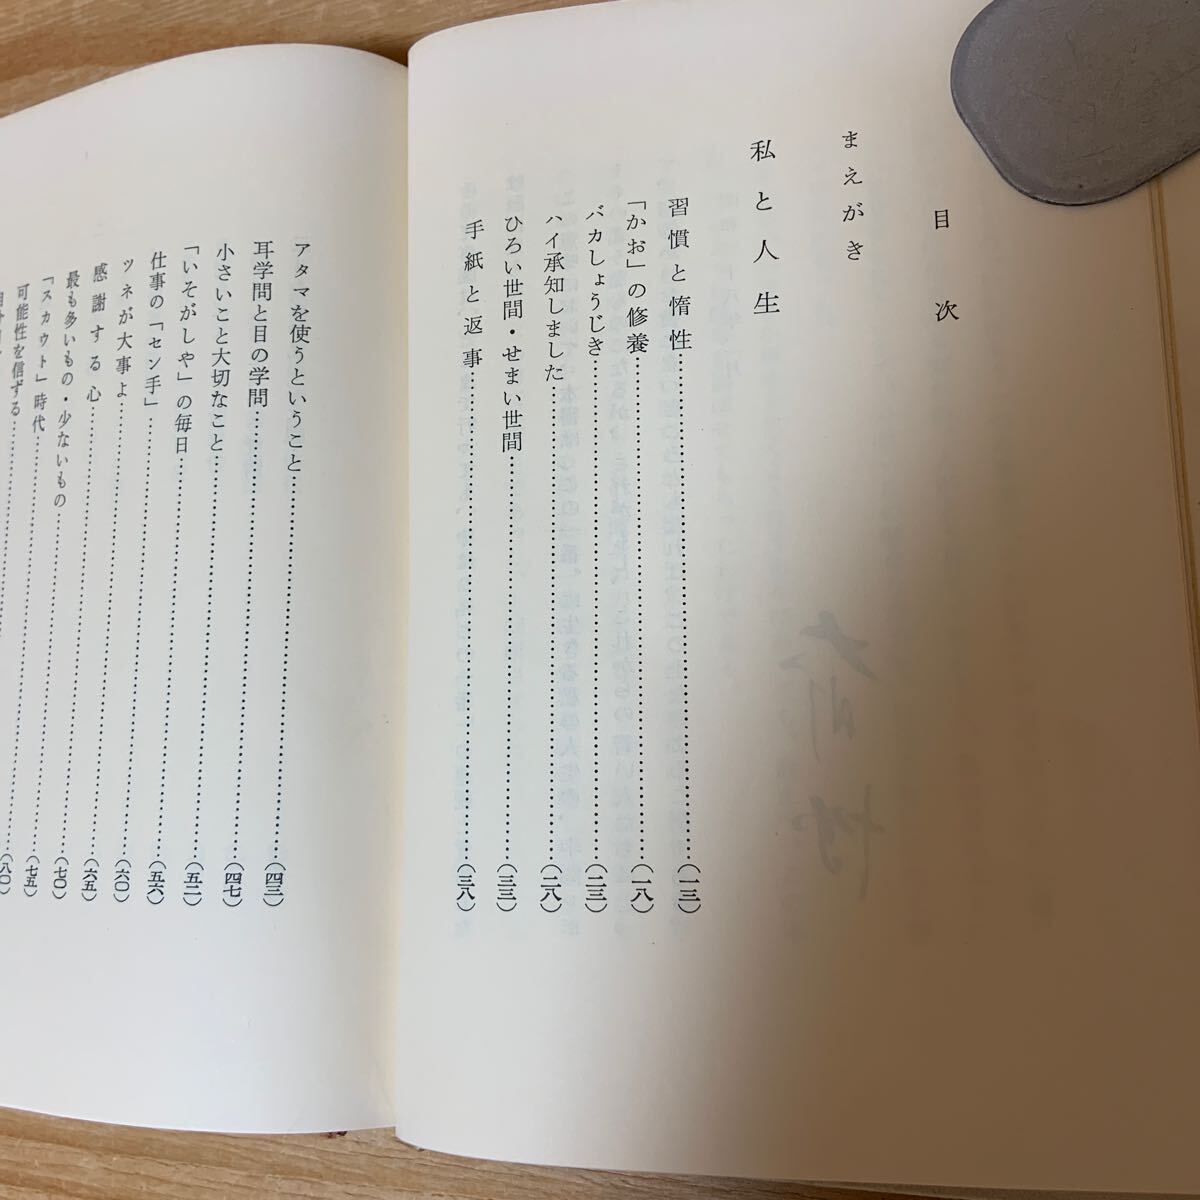 目次
まえがき
私と人生
習慣と惰性……(一三)
「かお」の修養……(一八)
バカしょうじき……(二三)
ハイ承知しました……(二八)
ひろい世間・せまい世間……(三三)
手紙と返事……(三八)
アタマを使うということ……(四三)
耳学問と目の学問……(四七)
小さいこと大切なこと……(五二)
「いそがしや」の毎日……(五六)
仕事の「セン手」……(六〇)
ツネが大事よ……(六五)
感謝する心……(七〇)
最も多いもの・少ないもの……(七五)
「スカウト」時代……(八〇)
可能性を信ずる